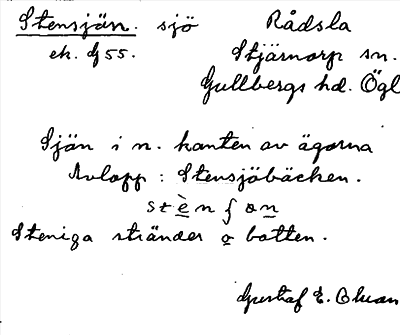 Stensjön. sjö Rådsla
ek. Gj 55. Stjärnorp sn.
Gullbergs hd. Ögl
Sjön i n. kanten av ägorna
Avlopp : Stensjöbäcken.
stènʃøn
Steniga stränder o botten.
Gustaf E.